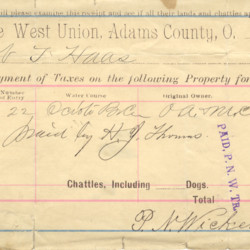 ld please examine this receipt and see if all their lands and chattles a
e West Union, Adams County, O.
T Haas
yment of Taxes on the following Property for
Number of Entry Water Course Original Owner.
22 Scioto Br Cr O A McC
Paid by H. J. Thomas.
PAID, P. N. W. TR
Chattles, Including Dogs.
Total
P. N. Wicke